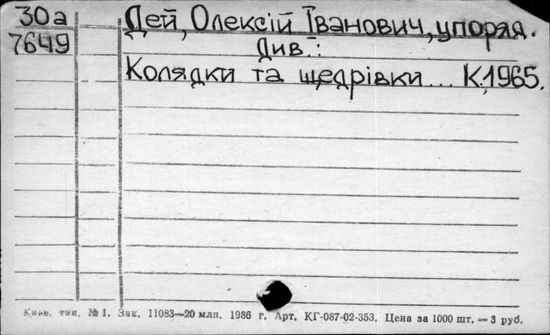 30а
7649
Дей, Олексій Їванович, упоряд.
Див.:
Колядки та щедрівки... К,1965.
Київ. тип. № 1. Зак. 11083—20 млн. 1986 г. Арт. КГ-087-02-353. Цена за 1000 шт. — 3 руб.